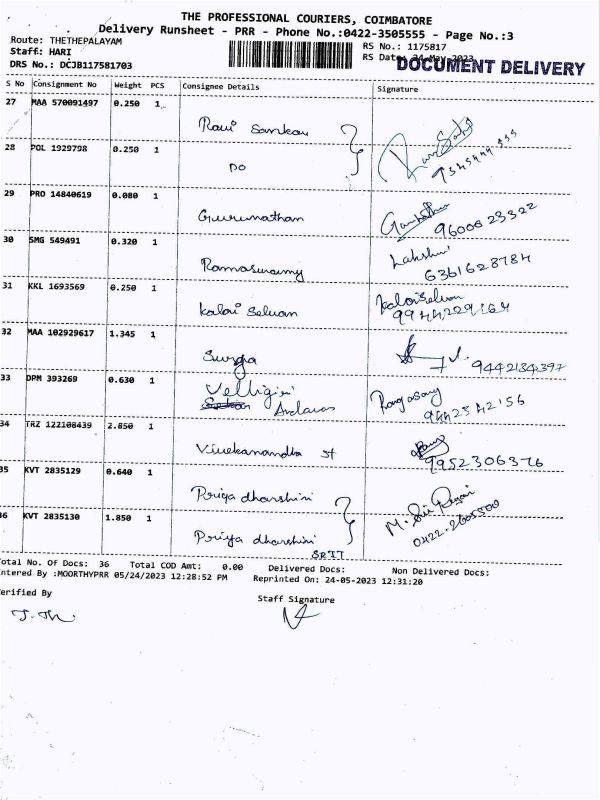 THE PROFESSIONAL COURIERS, COIMBATORE
Delivery Runsheet - PRR - Phone No.:0422-3505555 - Page No.:3
Route: THETHEPALAYAM
RS No.: 1175817
Staff: HARI
RS Date: 24-May-2023
DOCUMENT DELIVERY
DRS No.: DCJB117581703
S No Consignment No Weight PCS Consignee Details Signature
27 MAA 570091497 0.250 1
Ravi Sankar
28 POL 1929798 0.250 1
DO
29 PRO 14840619 0.080 1
Gurunathan
9600823322
30 SMG 549491 0.320 1
Ramaswamy Lakshmi
6361628784
31 KKL 1693569 0.250 1
Kalai Selvan Kalaiselvan
9944229164
32 MAA 102929617 1.345 1
Surya
9442134397
33 DPM 393269 0.630 1
Velligiri
Rangasamy
9442542156
34 TRZ 122108439 2.850 1
Vivekanandha st
9952306376
35 KVT 2835129 0.640 1
Priya dharshini
36 KVT 2835130 1.850 1
Priya dharshini
0422-2605500
Total No. Of Docs: 36 Total COD Amt: 0.00 Delivered Docs: Non Delivered Docs:
Entered By :MOORTHYPRR 05/24/2023 12:28:52 PM Reprinted On: 24-05-2023 12:31:20
Verified By
Staff Signature